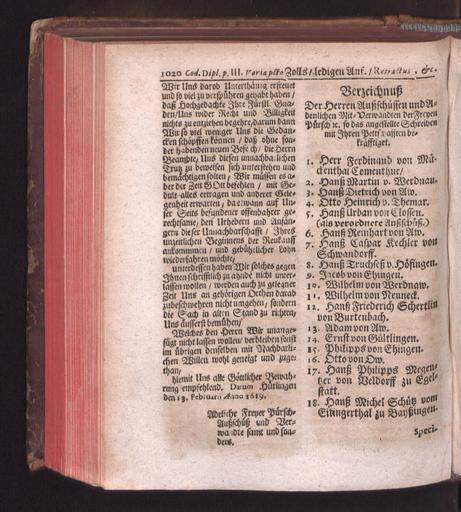 1020 Cod. Dipl. p. III. Varia pcto Zolls / ledigen Anf. / Retractus. &c.
Wir Uns darob Unterthänig erfreuet
und so viel zu verspühren gehabt haben /
daß Hochgedachte Ihre Fürstl. Gna-
den / Uns wider Recht und Billigkeit
nichts zu entziehen begehre, darum dann
Wir so viel weniger Uns die Gedan-
cken schöpffen können / daß ohne son-
der habenden neuen Befelch / die Herrn
Beambte / Uns diesen unnachbarlichen
Trutz zu beweisen sich unterstehen und
bemächtigen solten / Wir müssen es a-
ber der Zeit Gott befehlen / mit Ge-
dult alles ertragen und anderer Gele-
genheit erwarten / da er wann auf Un-
ser Seits befundener offenbahrer ge-
rechtsame / den Urhebern und Anfän-
gern dieser Unnachbarschafft / Ihres
unzeitlichen Beginnens der Reukauff
ankommen / und gebührlicher Lohn
wiederfahren möchte /
unterdessen haben Wir solches gegen
Ihnen schrifftlich zu ahnde nicht unter-
lassen wollen / werden auch zu gelegner
Zeit Uns an gehörigen Orthen darab
zu beschwehren nicht umgehen / sondern
die Sach in alten Stand zu richten /
Uns äusserst bemühen /
Welches den Herrn Wir unange-
fügt nicht lassen wollen / verbleiben sonst
im übrigen denselben mit Nachbarli-
chen Willen wohl geneigt und zuge-
than /
hiemit Uns alle Göttlicher Bewah-
rung empfehlend. Datum Hürlingen
den 13. Februarii Anno 1619.
Adeliche Freyer Pürsch-
Außschuß und Ver-
wandte samt und son-
ders.
Verzeichnuß
Der Herren Außschüssen und A-
denlichen Mit-Verwandten der Freyen
Pürsch ec. so das angestellte Schreiben
mit Ihren Pettschafften be-
kräfftiget.
1. Herr Ferdinand von Mü-
ckenthal Comenthur /
2. Hanß Martin v. Werdnau.
3. Hanß Dietrich von Aw.
4. Otto Heinrich v. Themar.
5. Hanß Urban von Clossen.
(als verordnete Außschüß.)
6. Hanß Reinhart von Aw.
7. Hanß Caspar Kechler von
Schwandorff.
8. Hanß Truchseß v. Höfingen.
9. Jacob von Ehingen.
10. Wilhelm von Werdnaw.
11. Wilhelm von Neuneck.
12. Hanß Friederich Schertlin
von Burtenbach.
13. Adam von Aw.
14. Ernst von Gültlingen.
15. Philipps von Ehingen.
16. Otto von Ow.
17. Hanß Philipps Megen-
tzer von Veldorff zu Egel-
statt.
18. Hanß Michel Schütz vom
Eitingerthal zu Bayßingen.
Speci-